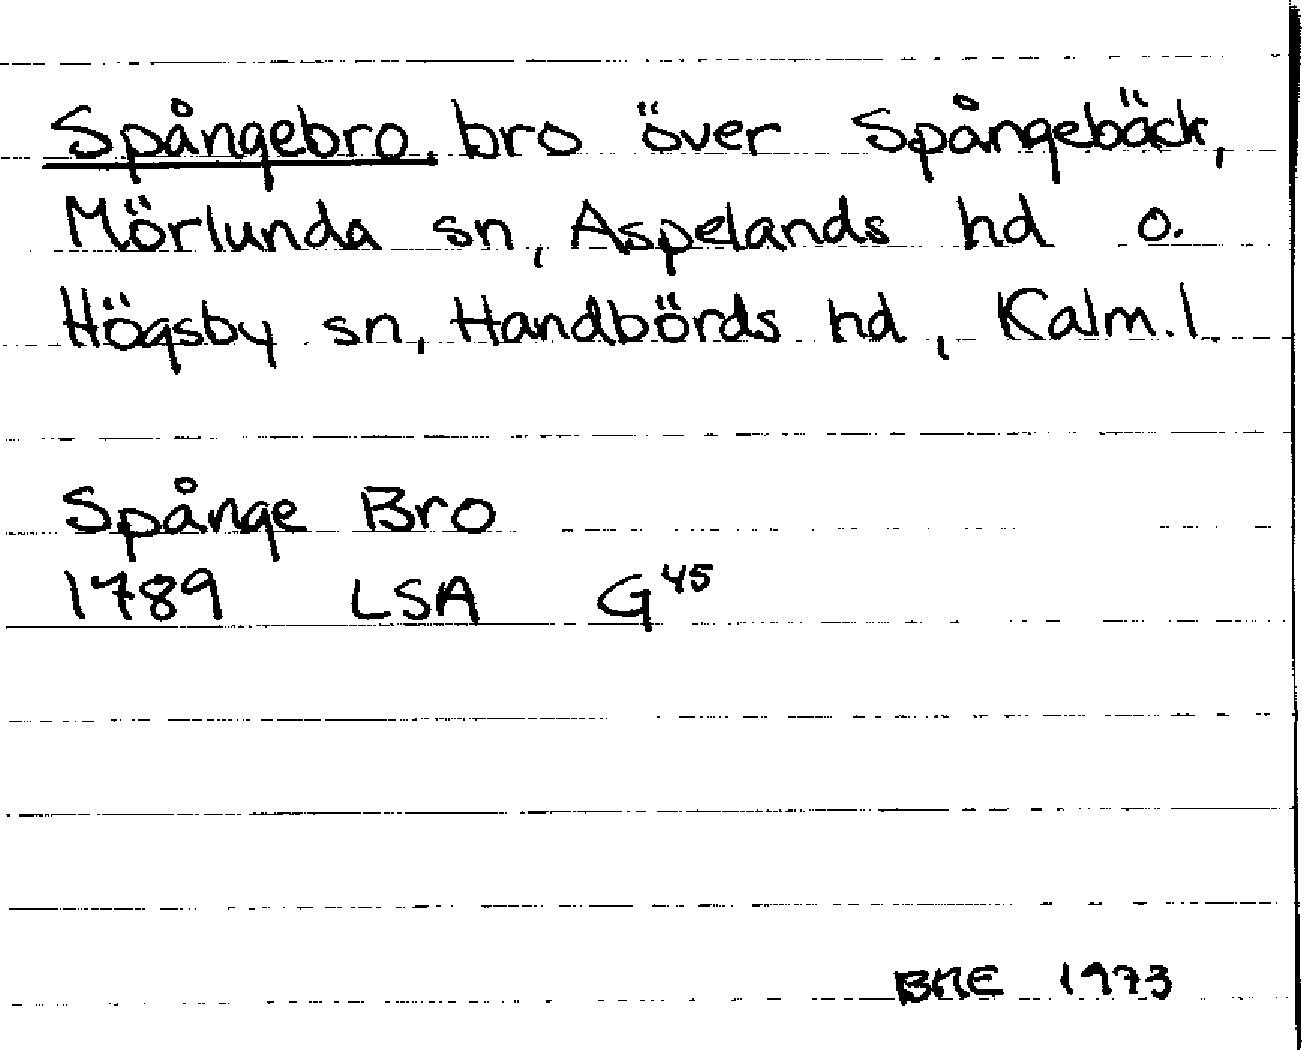 Spångebro. bro över Spångebäck,
Mörlunda sn, Aspelands hd o.
Högsby sn, Handbörds hd, Kalm. l
Spånge Bro
1789 LSA G45
BRE 1973